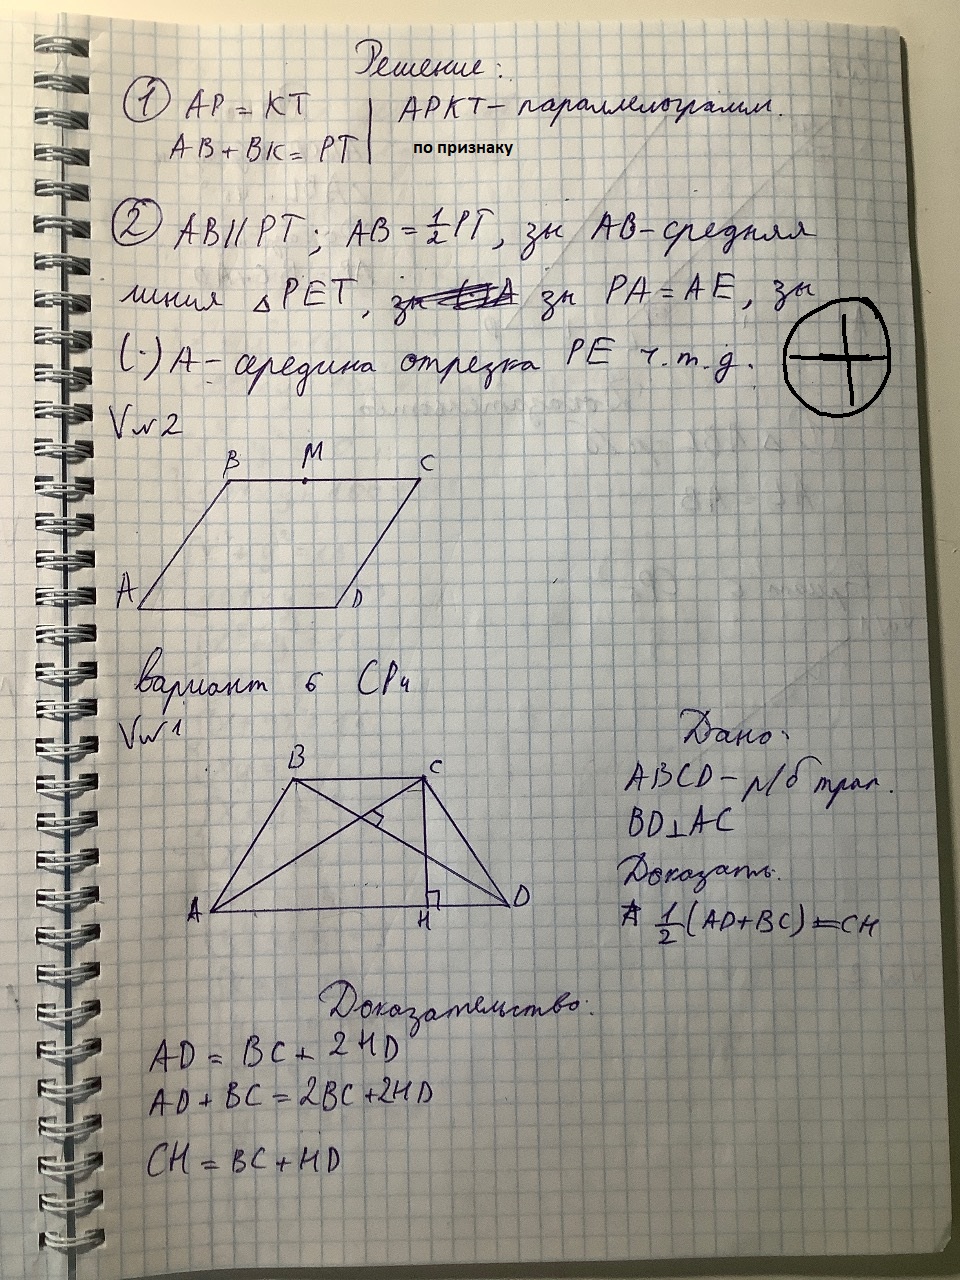 Решение:
① AP = KT | APKT – параллелограмм.
AB + BK = PT | по признаку
② AB // PT ; AB = ½ PT, зн AB – средняя
линия △ PET, зн PA = AE, зн
(·) A – середина отрезка PE ч.т.д.
V№2
B M C
A D
Вариант 6 СР4
V№1
Дано:
B C
ABCD – р/б трап.
BD ⊥ AC
Доказать:
A H D
½ (AD + BC) = CH
Доказательство:
AD = BC + 2HD
AD + BC = 2BC + 2HD
CH = BC + HD